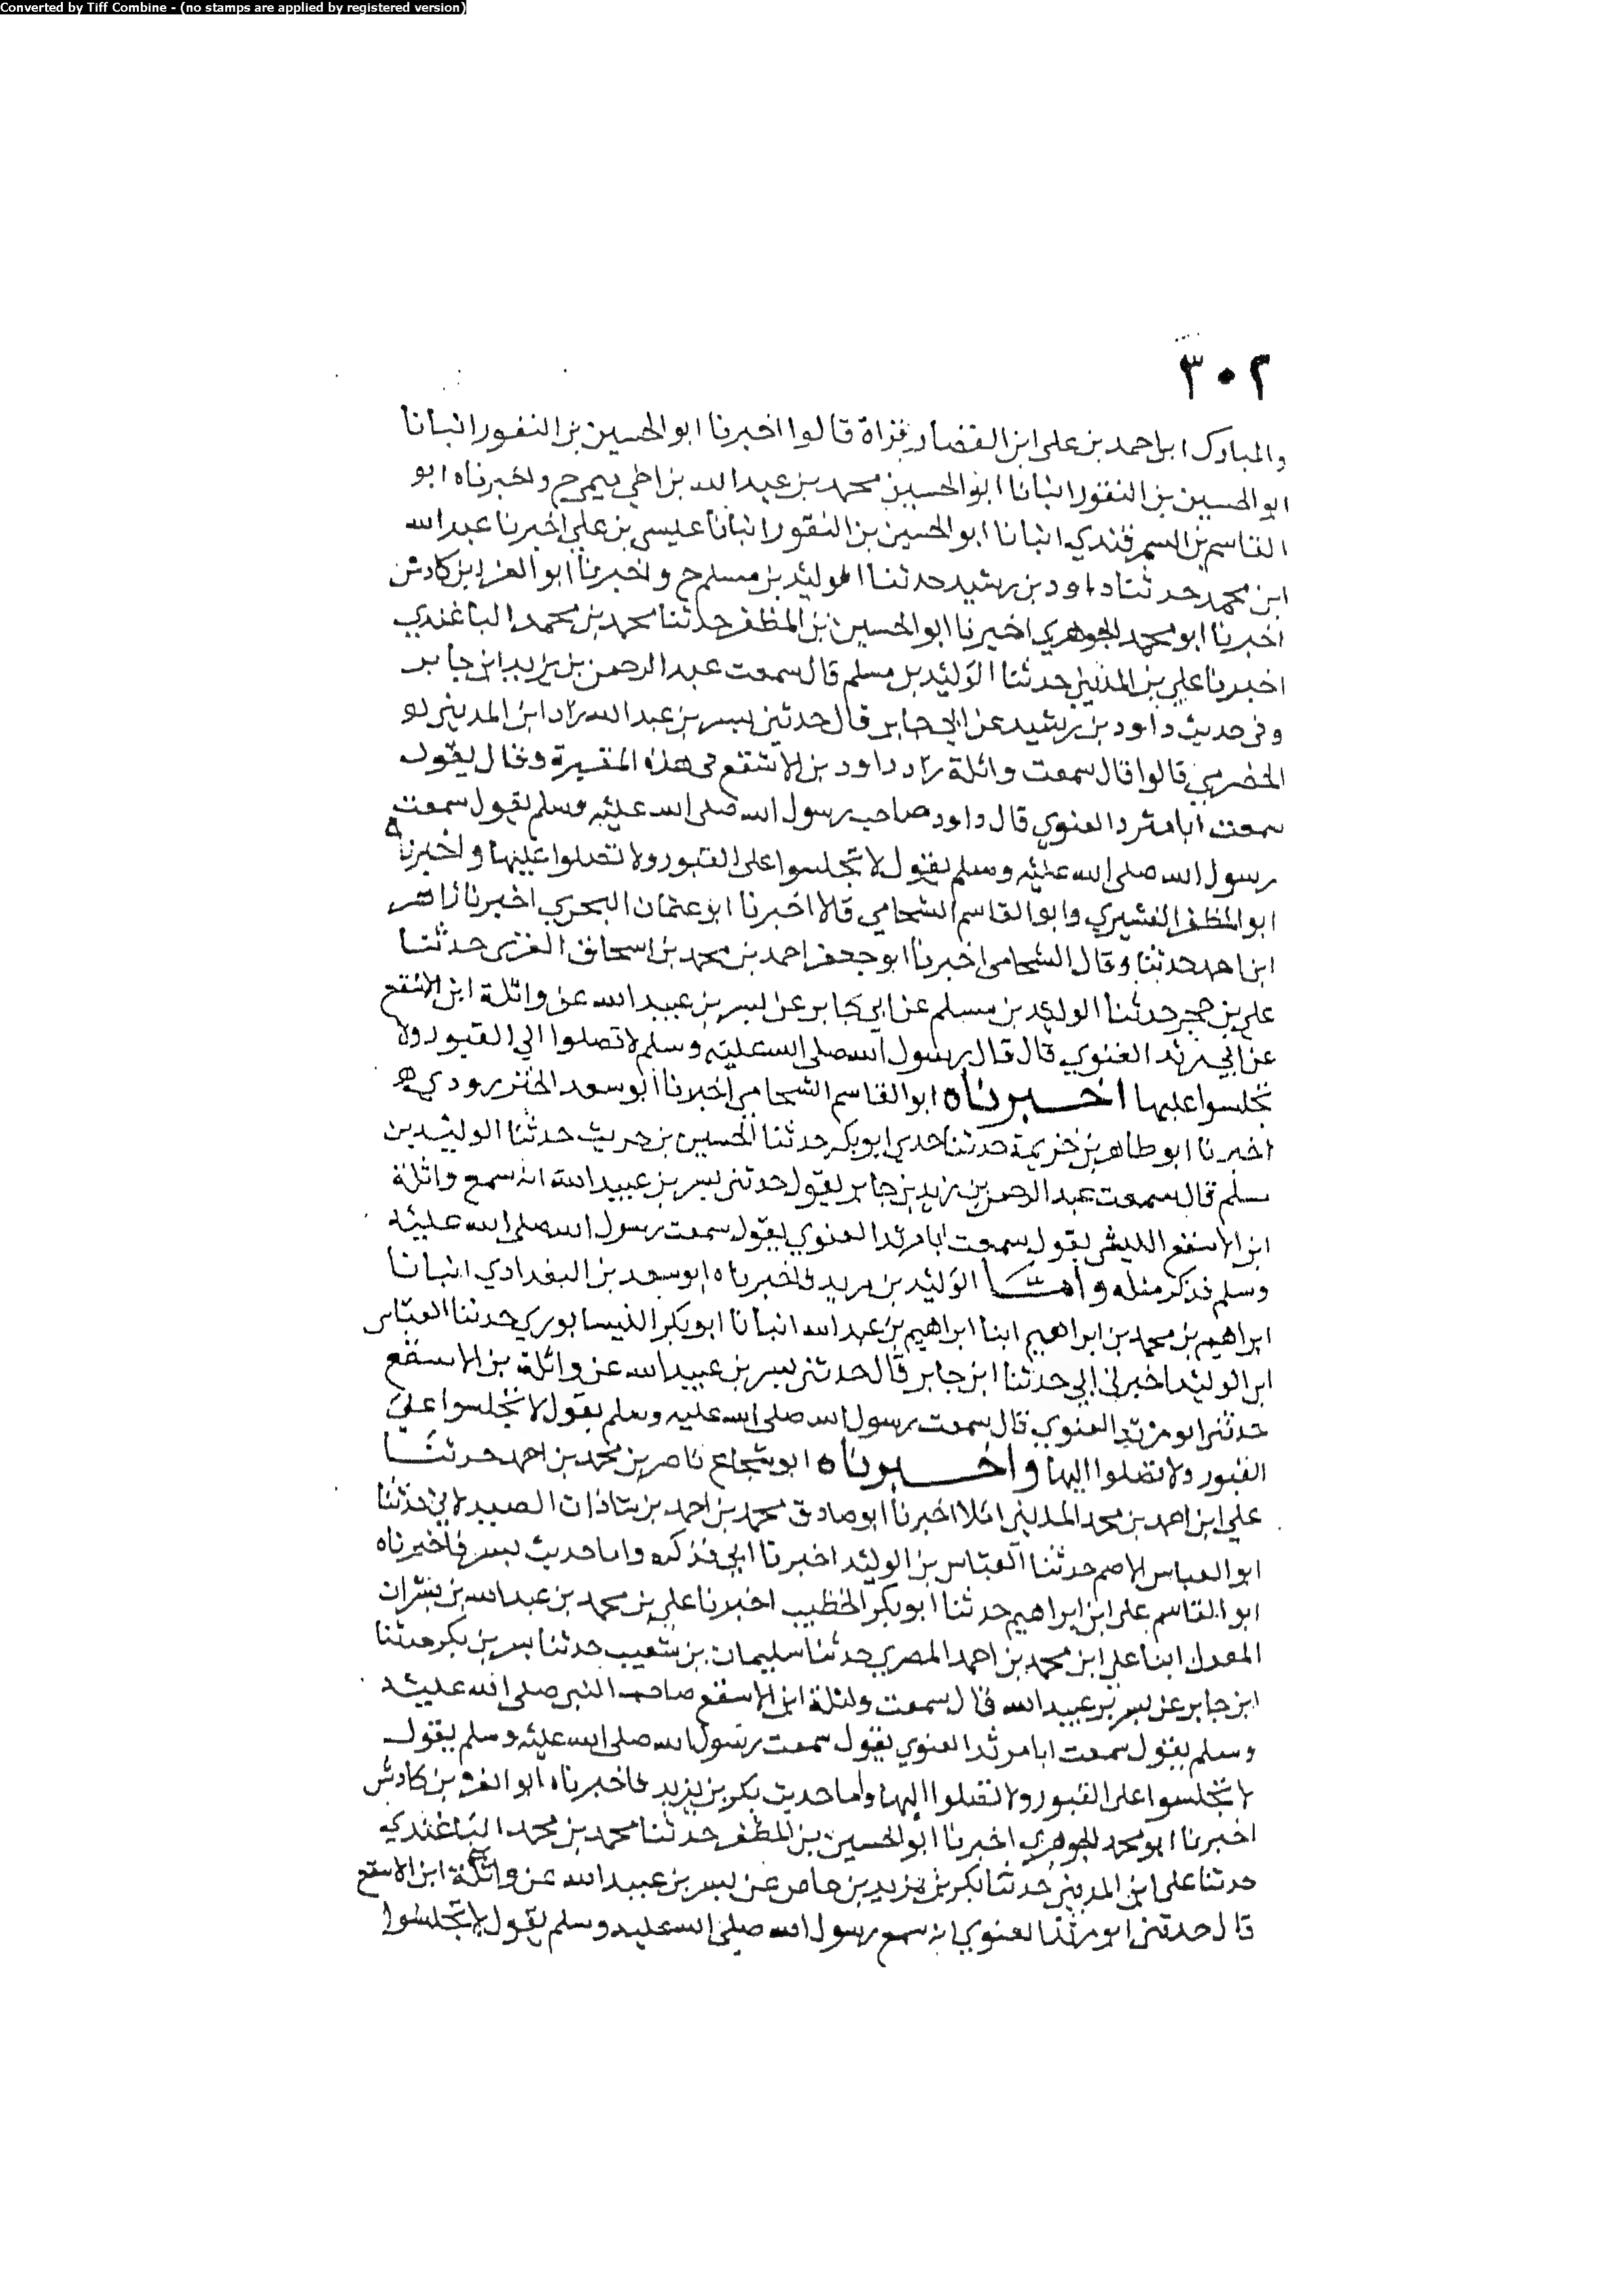 Converted by Tiff Combine - (no stamps are applied by registered version)
٣٠٢
والمبارك ابن احمد بن على ابن القصار قراة قالوا اخبرنا ابو الحسين بن النقور انبانا
ابو الحسين بن النقور انبانا ابو الحسين محمد بن عبد الله بن اخي ميمي ح واخبرناه ابو
القاسم بن السمرقندي انبانا ابو الحسين بن النقور انبانا عيسى بن علي اخبرنا عبد الله
ابن محمد حدثنا داود بن رشيد حدثنا الوليد بن مسلم ح واخبرنا ابو العز ابن كادش
اخبرنا ابو محمد الجوهري اخبرنا ابو الحسين بن المظفر حدثنا محمد بن محمد الباغندي
اخبرنا علي بن المديني حدثنا الوليد بن مسلم قال سمعت عبد الرحمن بن يزيد ابن جابر
وفى حديث داود بن رشيد عن ابي جابر قال حدثني بسر بن عبد الله زاد ابن المديني
الحضرمي قالوا قال سمعت واثلة زاد داود بن الاسقع فى هذه المقبرة وقال يقول
سمعت ابا مثرد الغنوي قال داود صاحب رسول الله صلى الله عليه وسلم يقول سمعت
رسول الله صلى الله عليه وسلم يقول لا تجلسوا على القبور ولا تصلوا عليها واخبرناه
ابو المظفر القشيري وابو القاسم الشحامي قالا اخبرنا ابو عثمان البحري اخبرنا زاهر
ابن احمد حدثنا وقال الشحامى اخبرنا ابو جعفر احمد بن محمد بن اسحاق العنزى حدثنا
علي بن حجر حدثنا الوليد بن مسلم عن ابي جابر عن بسر بن عبيد الله عن واثلة ابن الاسقع
عن ابي مرثد الغنوي قال قال رسول الله صلى الله عليه وسلم لا تصلوا الي القبور ولا
تجلسوا عليها اخبرناه ابو القاسم الشحامي اخبرنا ابو سعد الخنزرودي
اخبرنا ابو طاهر بن خزيمة حدثنا جدي ابو بكر حدثنا الحسين بن حريث حدثنا الوليد بن
مسلم قال سمعت عبد الرحمن بن يزيد بن جابر يقول حدثني بسر بن عبيد الله انه سمع واثلة
ابن الاسقع الليثى يقول سمعت ابا مرثد الغنوي يقول سمعت رسول الله صلى الله عليه
وسلم فذكر مثله وامــا الوليد بن مريد فاخبرناه ابو سعد بن البغدادي انبانا
ابراهيم بن محمد بن ابراهيم ابنا ابراهيم بن عبد الله انبانا ابو بكر النيسابوري حدثنا العباس
ابن الوليد اخبرني ابي حدثنا ابن جابر قال حدثنى بسر بن عبيد الله عن واثلة بن الاسقع
حدثنى ابو مرثد الغنوي قال سمعت رسول الله صلى الله عليه وسلم يقول لا تجلسوا على
القبور ولا تصلوا اليها واخبرناه ابو شجاع ناصر بن محمد بن احمد حدثنــا
علي ابن احمد بن محمد المديني املا اخبرنا ابو صادق محمد بن احمد بن شاذان الصيدلاني حدثنا
ابو العباس الاصم حدثنا العباس بن الوليد اخبرنا ابي فذكره واما حديث بسر فاخبرناه
ابو القاسم على ابن ابراهيم حدثنا ابو بكر الخطيب اخبرنا علي بن محمد بن عبد الله بن بشران
المعدل ابنا علي ابن محمد بن احمد المصري حدثنا سليمان بن شعيب حدثنا بسر بن بكر حدثنا
ابن جابر عن بسر بن عبيد الله قال سمعت واثلة ابن الاسقع صاحب النبى صلى الله عليه
وسلم يقول سمعت ابا مرثد الغنوي يقول سمعت رسول الله صلى الله عليه وسلم يقول
لا تجلسوا على القبور ولا تصلوا اليها واما حديث بكر بن يزيد فاخبرناه ابو العز بن كادش
اخبرنا ابو محمد الجوهري اخبرنا ابو الحسين بن المظفر حدثنا محمد بن محمد الباغندي
حدثنا على ابن المديني حدثنا بكر بن يزيد بن جابر عن بسر بن عبيد الله عن واثلة ابن الاسقع
قال حدثنى ابو مرثد الغنوي انه سمع رسول الله صلى الله عليه وسلم يقول لا تجلسوا